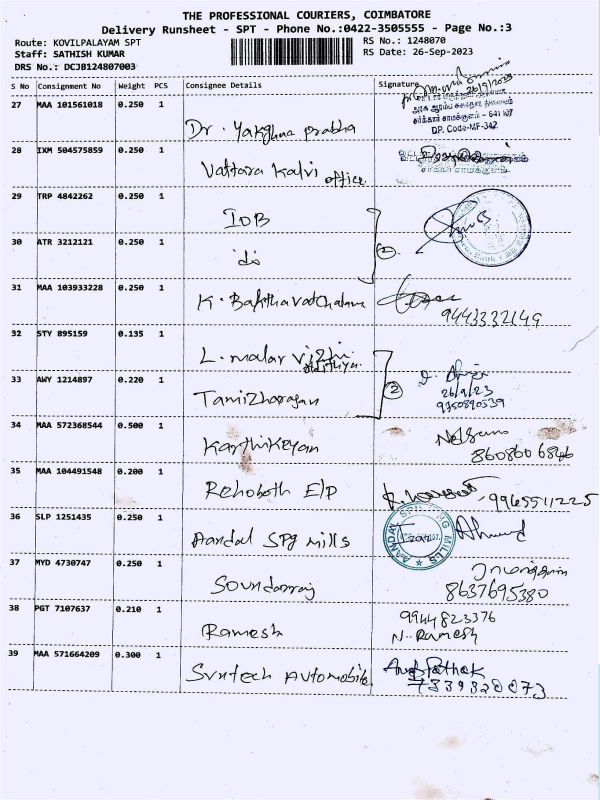 THE PROFESSIONAL COURIERS, COIMBATORE
Delivery Runsheet - SPT - Phone No.:0422-3505555 - Page No.:3
Route: KOVILPALAYAM SPT
Staff: SATHISH KUMAR
DRS No.: DCJB124807003
RS No.: 1248070
RS Date: 26-Sep-2023
S No Consignment No Weight PCS Consignee Details Signature
27 MAA 101561018 0.250 1
Dr. Yakghna prabha
26/9/2023
சர்க்கார் சாமக்குளம் - 641 107
DP. Code-MF-342
28 IXM 504575859 0.250 1
Vattara Kalvi office
29 TRP 4842262 0.250 1
IOB
30 ATR 3212121 0.250 1
do
2
31 MAA 103933228 0.250 1
K. Bakthavatchalam
9443332149
32 STY 895159 0.135 1
L. malar vizhi
33 AWY 1214897 0.220 1
Tamizharasan
2
26/9/23
9750890539
34 MAA 572368544 0.500 1
Karthikeyan
8608606846
35 MAA 104491548 0.200 1
Rehoboth E/P
9965511225
36 SLP 1251435 0.250 1
Aandal SPg Mills
37 MYD 4730747 0.250 1
Soundarraj
8637695380
38 PGT 7107637 0.210 1
Ramesh
9944823376
N. Ramesh
39 MAA 571664209 0.300 1
Suntech Automobile.
7339320073